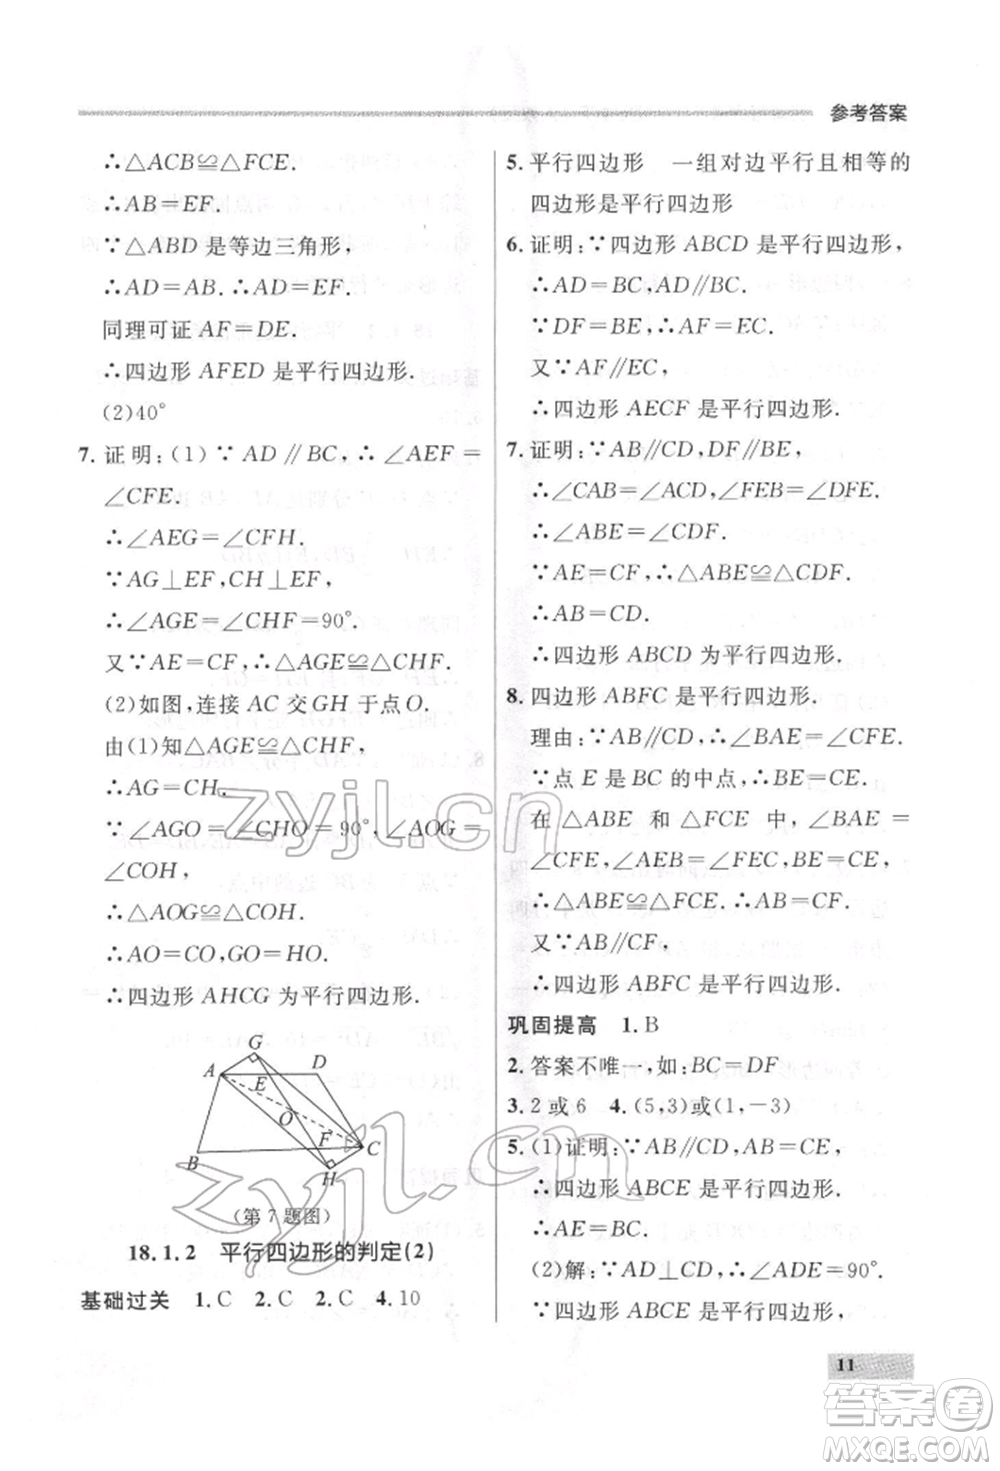 参考答案
∴△ACB≌△FCE.
∴AB=EF.
∵△ABD 是等边三角形,
∴AD=AB.∴AD=EF.
同理可证 AF=DE.
∴四边形 AFED 是平行四边形.
(2)40°
7.证明:(1)∵AD∥BC,∴∠AEF=
∠CFE.
∴∠AEG=∠CFH.
∵AG⊥EF,CH⊥EF,
∴∠AGE=∠CHF=90°.
又∵AE=CF,∴△AGE≌△CHF.
(2)如图,连接 AC 交 GH 于点 O.
由(1)知△AGE≌△CHF.
∴AG=CH.
∵∠AGO=∠CHO=90°,∠AOG=
∠COH,
∴△AOG≌△COH.
∴AO=CO,GO=HO.
∴四边形 AHCG 为平行四边形.
G
A
D
E
O
F
B
C
H
(第7题图)
18.1.2 平行四边形的判定(2)
基础过关 1.C 2.C 3.C 4.10
5.平行四边形 一组对边平行且相等的
四边形是平行四边形
6.证明:∵四边形 ABCD 是平行四边形,
∴AD=BC,AD∥BC.
∵DF=BE,∴AF=EC.
又∵AF∥EC,
∴四边形 AECF 是平行四边形.
7.证明:∵AB∥CD,DF∥BE,
∴∠CAB=∠ACD,∠FEB=∠DFE.
∴∠ABE=∠CDF.
∵AE=CF,∴△ABE≌△CDF.
∴AB=CD.
∴四边形 ABCD 为平行四边形.
8.四边形 ABFC 是平行四边形.
理由:∵AB∥CF,∴∠BAE=∠CFE.
∵点 E 是 BC 的中点,∴BE=CE.
在△ABE 和△FCE 中,∠BAE=
∠CFE,∠AEB=∠FEC,BE=CE,
∴△ABE≌△FCE.∴AB=CF.
又∵AB∥CF,
∴四边形 ABFC 是平行四边形.
巩固提高 1.B
2.答案不唯一,如:BC=DF
3.2或6 4.(5,3)或(1,-3)
5.(1)证明:∵AB∥CD,AB=CE,
∴四边形 ABCE 是平行四边形.
∴AE=BC.
(2)解:∵AD⊥CD,∴∠ADE=90°.
∵四边形 ABCE 是平行四边形,
11
zyjl.cn
zyjl.cn
答案圈
MXQE.COM